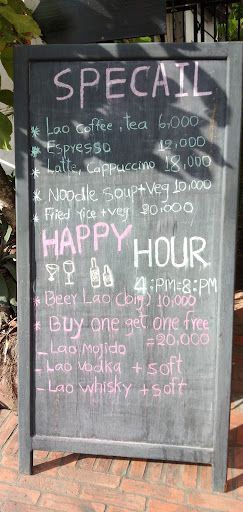 SPECAIL
* Lao coffee, tea 6,000
* Espresso 12,000
* Latte, Cappuccino 18,000
* Noodle soup+veg 20,000
* Fried rice + veg 20,000
HAPPY HOUR
4:PM=8:PM
* Beer Lao (big) 10,000
* Buy one get one free
=20,000
- Lao mojido
- Lao vodka + soft
- Lao whisky + soft